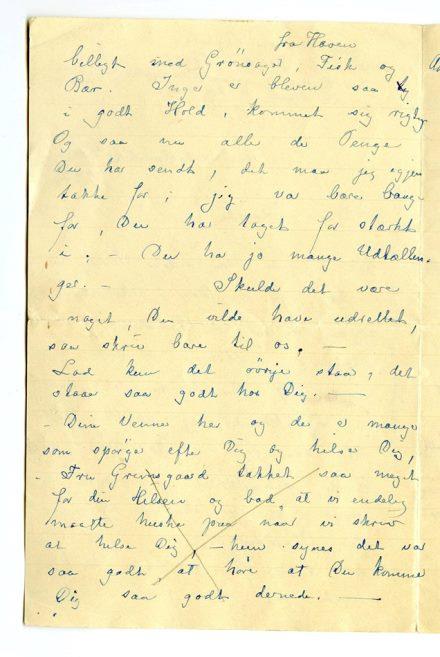 fra Haven
billigt med Grönsager, Fisk og
Bær. Inger er bleven saa
i godt Hold, kommet sig rigtig
Og saa nu alle de Penge
Du har sendt, det maa jeg igjen
takke for; jeg var bare bange
for, Du har taget for stærkt
i. - Du har jo mange Udtællin-
ger. - Skulde det være
noget, Du vilde have udrettet,
saa skriv bare til os. -
Lad kun det övrje staa, det
staar saa godt hos Dig. -
- Dine Venner her og de er mange
som spörge efter Dig og hilse Dig,
- Fru Gremsgaard takket saa meget
for din Hilsen og bad, at vi endelig
maatte huske paa naar vi skrev
at hilse Dig, - hun synes det var
saa godt, at höre at Du kommer
Dig saa godt dernede. -